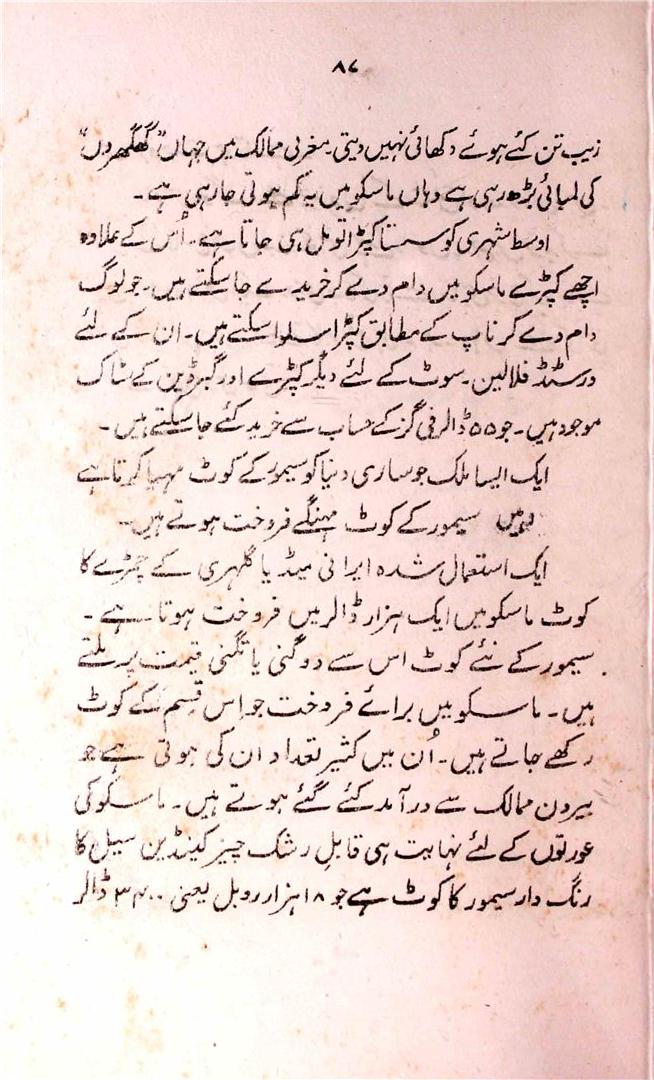 ۸۷
زیب تن کئے ہوئے دکھائی نہیں دیتی۔ مغربی ممالک میں جہاں "گھگھروں"
کی لمبائی بڑھ رہی ہے وہاں ماسکو میں یہ کم ہوتی جارہی ہے۔
اوسط شہری کو سستا کپڑا تو مل ہی جاتا ہے۔ اُس کے علاوہ
اچھے کپڑے ماسکو میں دام دے کر خریدے جاسکتے ہیں۔ جو لوگ
دام دے کر ناپ کے مطابق کپڑا سلوا سکتے ہیں۔ ان کے لئے
ورسٹڈ فلالین۔ سوٹ کے لئے دیگر کپڑے اور گبرڈین کے سٹاک
موجود ہیں۔ جو ۵۵ ڈالر فی گز کے حساب سے خرید کئے جاسکتے ہیں۔
ایک ایسا ملک جو ساری دنیا کو سیمور کے کوٹ مہیا کرتا ہے
یہیں سیمور کے کوٹ مہنگے فروخت ہوتے ہیں۔
ایک استعمال شدہ ایرانی میڈ یا گلہری کے چمڑے کا
کوٹ ماسکو میں ایک ہزار ڈالر میں فروخت ہوتا ہے۔
سیمور کے نئے کوٹ اس سے دوگنی یا تگنی قیمت پر ملتے
ہیں۔ ماسکو میں برائے فروخت جو اِس قِسم کے کوٹ
رکھے جاتے ہیں۔ اُن میں کثیر تعداد ان کی ہوتی ہے جو
بیرون ممالک سے درآمد کئے گئے ہوتے ہیں۔ ماسکو کی
عورتوں کے لئے نہایت ہی قابلِ رشک چیز کینڈین سیل کا
رنگ دار سیمور کا کوٹ ہے جو ۱۸ ہزار روبل یعنی ڈالر